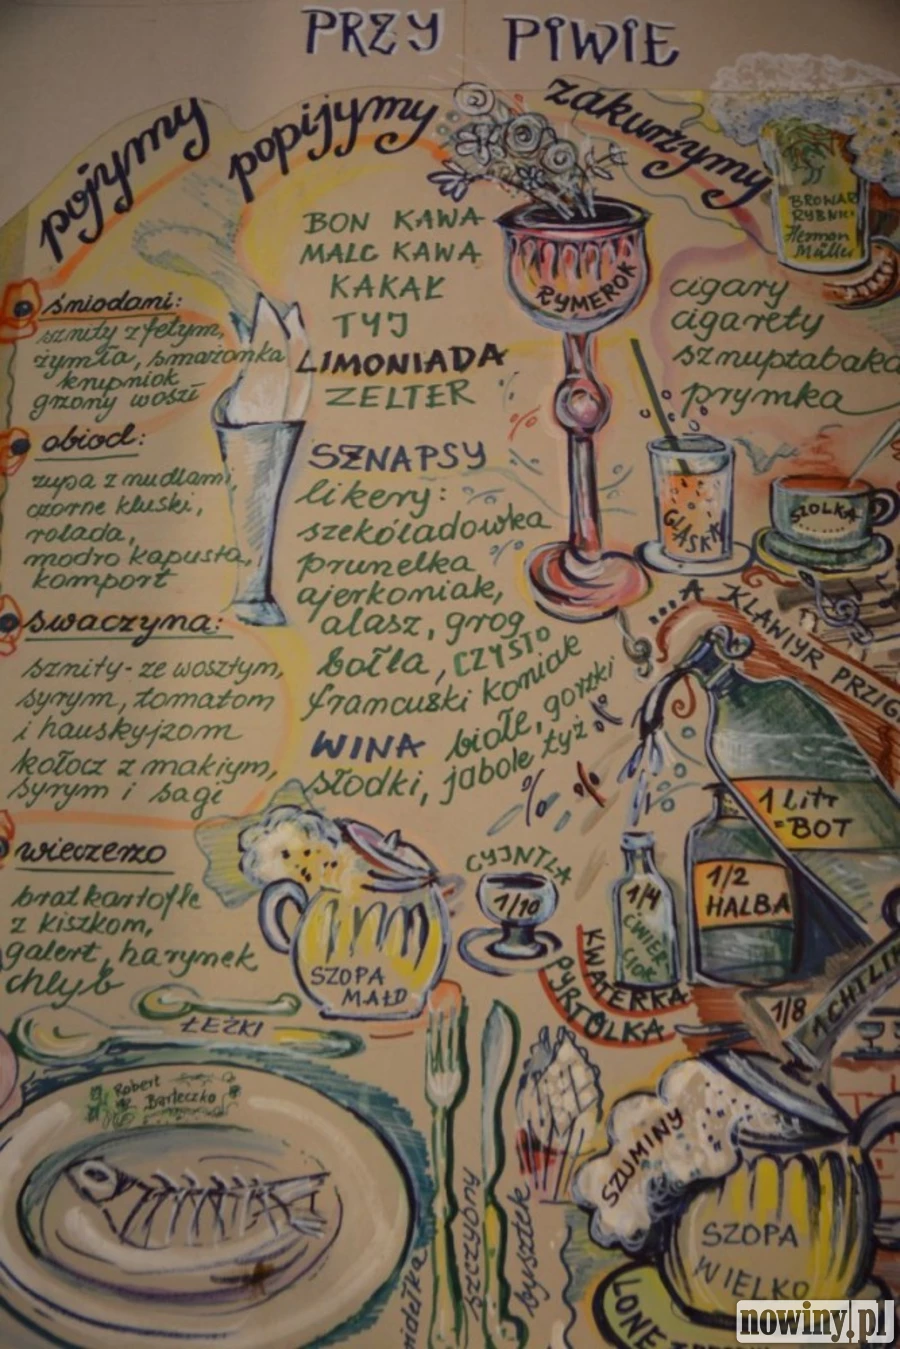 PRZY PIWIE
pojymy
popijymy
zakurzymy
śniodani:
sznity z fetym,
żymła, smażonka
knupniok
grzony woszt
obiod:
zupa z nudlami
czorne kluski,
rolada,
modro kapusta,
komport
swaczyna:
sznity-ze wosztym,
syrym, tomatom
i hauskyjzom
kołocz z makiym,
syrym i sagi
wieczerzo
bratkartofle
z kiszkom,
galert, harynek
chlyb
BON KAWA
MALC KAWA
KAKAŁ
TYJ
LIMONIADA
ZELTER
SZNAPSY
likery:
szekóladowka
prunelka
ajerkoniak,
alasz, grog
bołla, CZYSTO
francuski koniak
WINA białe, gorzki
słodki, jabole tyż
RYMEROK
BROWAR
RYBNI
Herman
Müller
cigary
cigarety
sznuptabaka
prymka
GLASKA
SZOLKA
...A KLAWIYR PRZIG
1 litr
=BOT
1/2
HALBA
1/4
ĆWIERTLIOK
CYJNTLA
1/10
KWATERKA
PYRTOLKA
1/8
ACHTLIK
SZOPA
MAŁO
ŁEŻKI
Robert
Barteczko
widelka
szczyóny
bysztek
SZUMINY
SZOPA
WIELKO
LONE
nowiny.pl